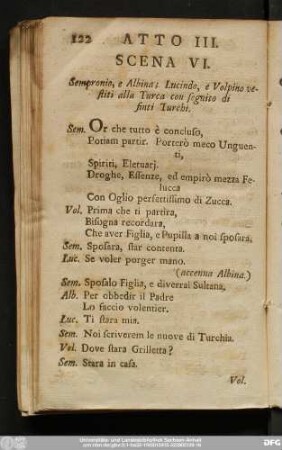 122 ATTO III.
SCENA VI.
Sempronio, e Albina; Lucindo, e Volpino ve-
stiti alla Turca con seguito di
finti Turchi.
Sem. Or che tutto è concluso,
Potiam partir. Porterò meco Unguen-
ti,
Spiriti, Eletuarj.
Droghe, Essenze, ed empirò mezza Fe-
lucca
Con Oglio perfettissimo di Zucca.
Vol. Prima che ti partira,
Bisogna recordara,
Che aver Figlia, e Pupilla a noi sposara.
Sem. Sposara, star contenta.
Luc. Se voler porger mano.
(accenna Albina.)
Sem. Sposalo Figlia, e diverrai Sultana,
Alb. Per obbedir il Padre
Lo faccio volentier.
Luc. Ti stara mia.
Sem. Noi scriverem le nuove di Turchia.
Vol. Dove stara Grilletta?
Sem. Stara in casa.
Vol.
Universitäts- und Landesbibliothek Sachsen-Anhalt
DFG